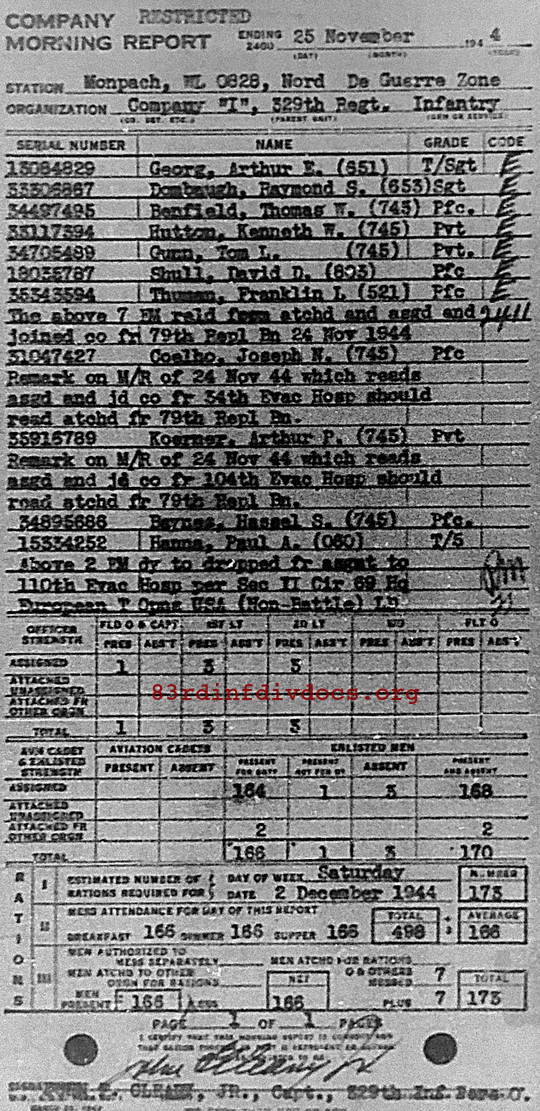 COMPANY RESTRICTED
MORNING REPORT ENDING 2400 25 November 194 4
(DAY) (MONTH)
STATION Monpach, WL 0828, Nord De Guerre Zone
ORGANIZATION Company "I", 329th Regt. Infantry
SERIAL NUMBER NAME GRADE CODE
13084829 Georg, Arthur E. (651) T/Sgt E
33306867 Dombaugh, Raymond S. (653)Sgt E
34497495 Benfield, Thomas W. (745) Pfc. E
33117394 Hutton, Kenneth W. (745) Pvt E
34705489 Gunn, Tom L. (745) Pvt. E
18035787 Shull, David D. (803) Pfc E
35343594 Thuman, Franklin L (521) Pfc E
The above 7 EM reld from atchd and asgd and 2411
joined co fr 79th Repl Bn 24 Nov 1944
31047427 Coelho, Joseph N. (745) Pfc
Remark on M/R of 24 Nov 44 which reads
asgd and jd co fr 34th Evac Hosp should
read atchd fr 79th Repl Bn.
35916789 Koerner, Arthur P. (745) Pvt
Remark on M/R of 24 Nov 44 which reads
asgd and jd co fr 104th Evac Hosp should
read atchd fr 79th Repl Bn.
34895686 Baynes, Hassel S. (745) Pfc.
15334252 Hanna, Paul A. (060) T/5
Above 2 EM dy to dropped fr asgmt to
110th Evac Hosp per Sec II Cir 69 Hq
European T Opns USA (Non-Battle) LD
OFFICER STRENGTH FLD O & CAPT 1ST LT 2D LT W O FLT O
PRES ABS'T PRES ABS'T PRES ABS'T PRES ABS'T PRES ABS'T
ASSIGNED 1 3 3
ATTACHED UNASSIGNED
83rdinfdivdocs.org
ATTACHED FR OTHER ORGN
TOTAL 1 3 3
AVN CADET & ENLISTED STRENGTH AVIATION CADETS ENLISTED MEN
PRESENT ABSENT PRESENT FOR DUTY PRESENT NOT FOR DY ABSENT PRESENT AND ABSENT
ASSIGNED 164 1 3 168
ATTACHED UNASSIGNED
ATTACHED FR OTHER ORGN 2 2
TOTAL 166 1 3 170
RATIONS
I ESTIMATED NUMBER OF RATIONS REQUIRED FOR DAY OF WEEK Saturday NUMBER
DATE 2 December 1944 173
II MESS ATTENDANCE FOR DAY OF THIS REPORT TOTAL AVERAGE
BREAKFAST 166 DINNER 166 SUPPER 166 498 ÷ 3 166
III MEN AUTHORIZED TO MESS SEPARATELY MEN ATCHD FOR RATIONS
MEN ATCHD TO OTHER ORGN FOR RATIONS NET O & OTHERS MESSED 7 TOTAL
MEN PRESENT 166 LESS 166 PLUS 7 173
PAGE 1 OF 1 PAGES
CLEARY, JR., Capt., 329th Inf